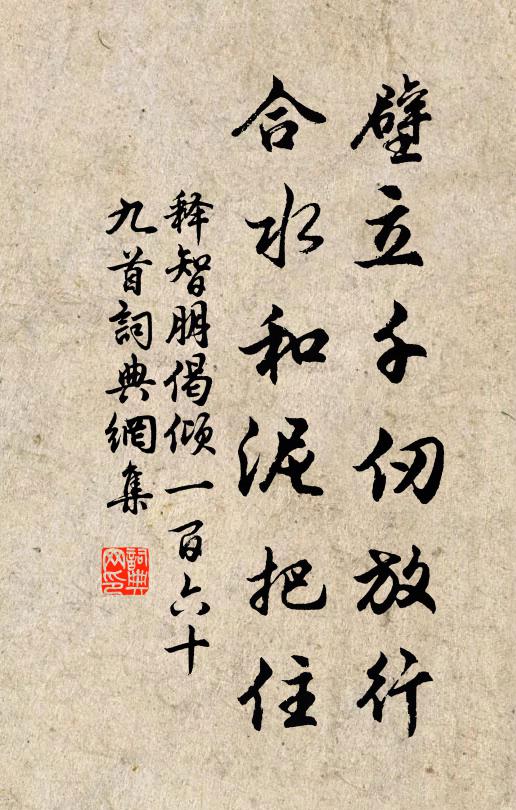 壁立千仞放行
合水和泥把住
释智朋偈倾一百六十
九首詞典網集
詞典网印